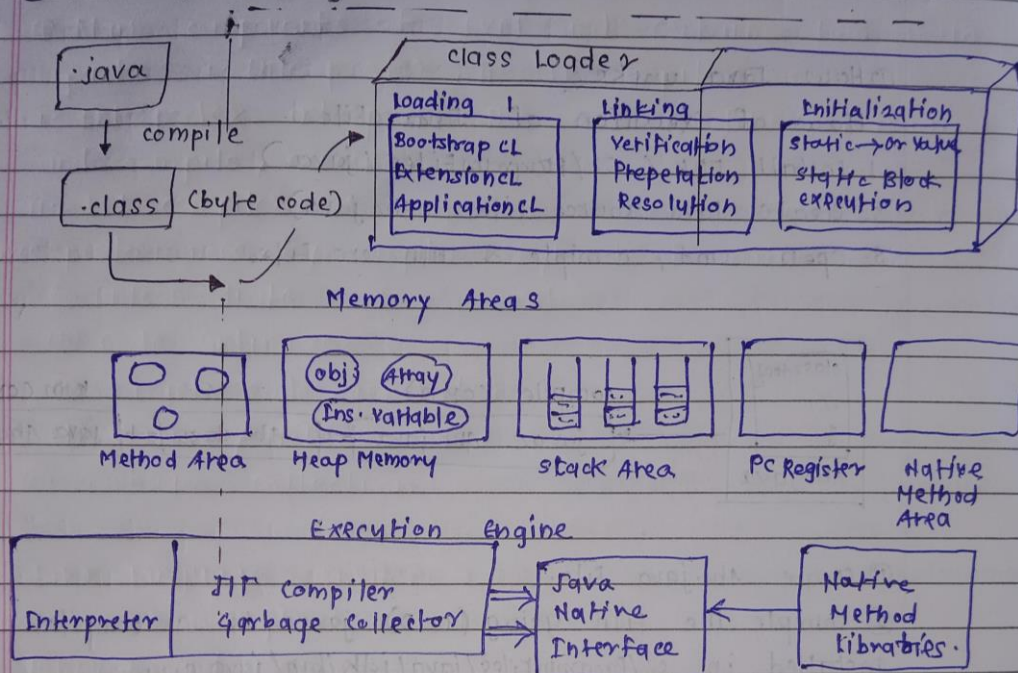 .java
compile
.class (byte code)
Class Loader
Loading
Bootstrap CL
Extension CL
Application CL
Linking
Verification
Preperation
Resolution
Initialization
static → or value
static Block
execution
Memory Areas
obj
Array
Ins. variable
Method Area
Heap Memory
Stack Area
PC Register
Native
Method
Area
Execution Engine
Interpreter
JIT Compiler
Garbage Collector
Java
Native
Interface
Native
Method
Libraries.